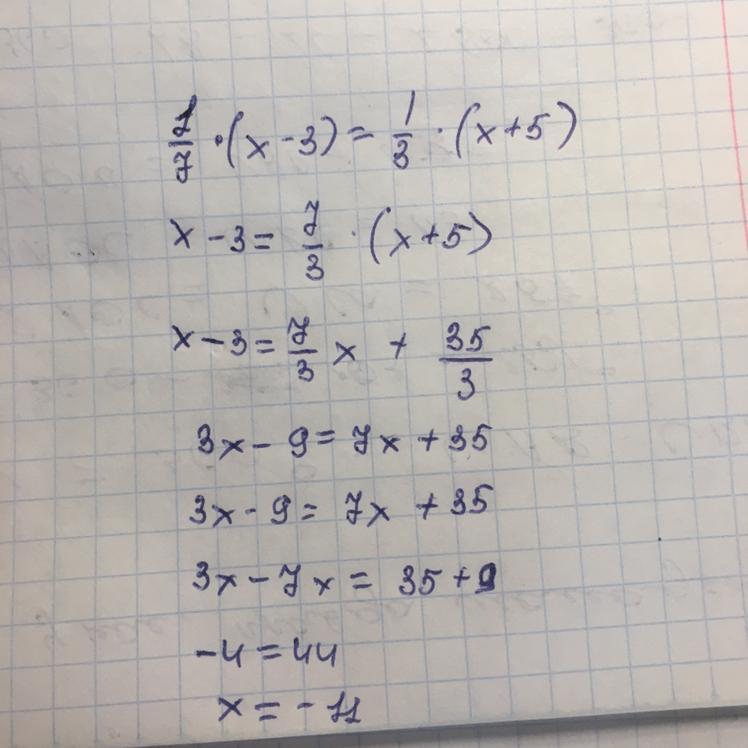 1/7 · (x - 3) = 1/3 · (x + 5)
x - 3 = 7/3 · (x + 5)
x - 3 = 7/3 x + 35/3
3x - 9 = 7x + 35
3x - 9 = 7x + 35
3x - 7x = 35 + 9
-4 = 44
x = -11